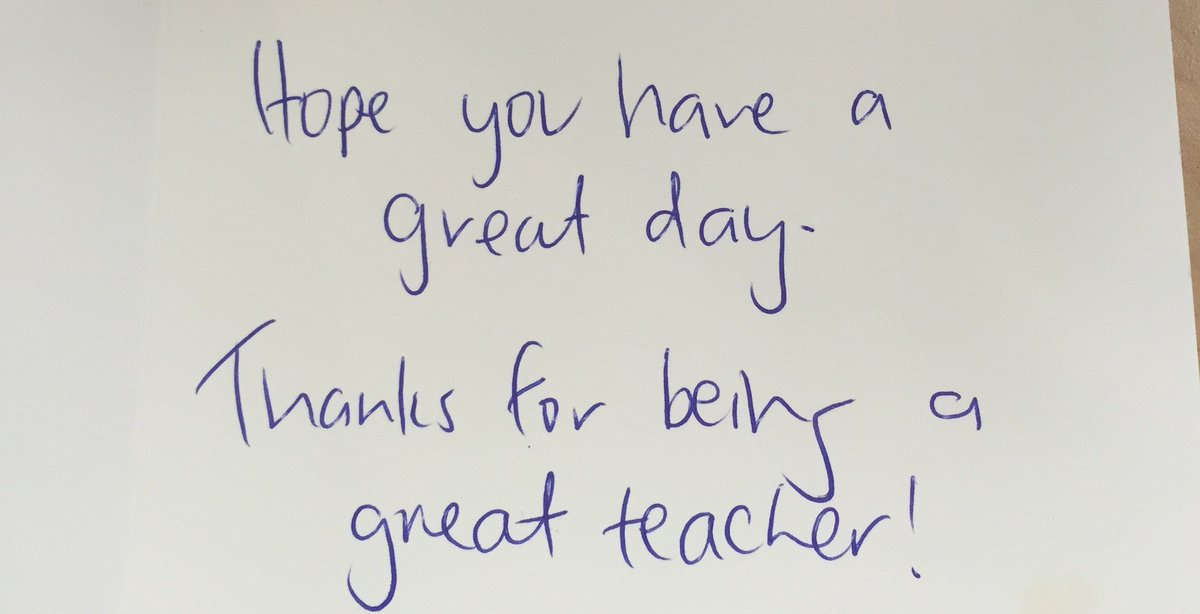 Hope you have a
great day.
Thanks for being a
great teacher!